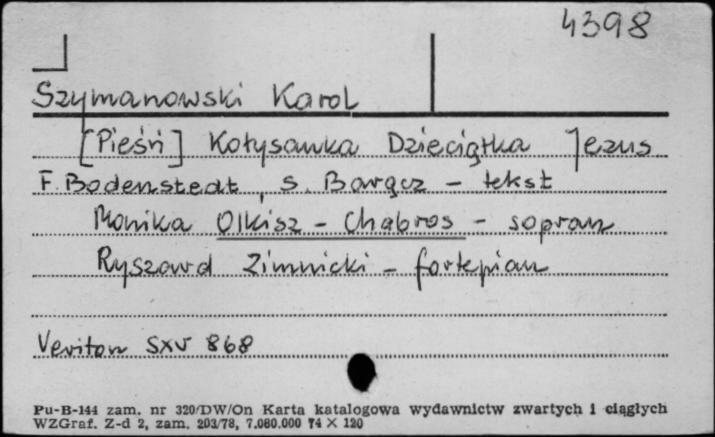 4398
Szymanowski Karol
[Pieśń] Kołysanka Dzieciątka Jezus
F. Bodenstedt, S. Barącz - tekst
Monika Olkisz - Chabros - sopran
Ryszard Zimnicki - fortepian
Veriton SXV 868
Pu-B-144 zam. nr 320/DW/On Karta katalogowa wydawnictw zwartych i ciągłych
WZGraf. Z-d 2, zam. 203/78, 7.080.000 74 × 120